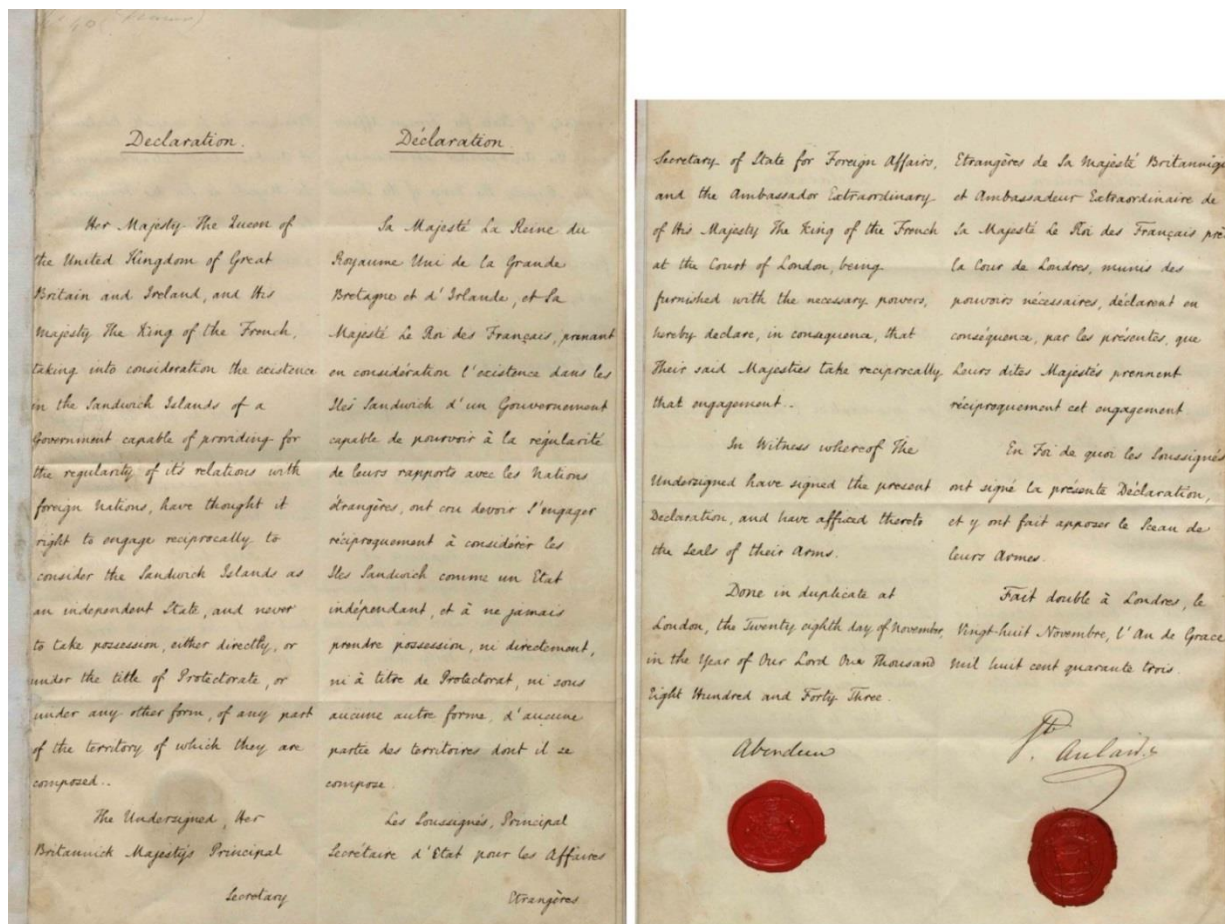 Declaration.
Her Majesty The Queen of
the United Kingdom of Great
Britain and Ireland, and His
Majesty The King of the French,
taking into consideration the existence
in the Sandwich Islands of a
Government capable of providing for
the regularity of it's relations with
foreign Nations, have thought it
right to engage reciprocally to
consider the Sandwich Islands as
an independent State, and never
to take possession, either directly, or
under the title of Protectorate, or
under any other form, of any part
of the territory of which they are
composed..
The Undersigned, Her
Britannick Majesty's Principal
Secretary
Déclaration.
Sa Majesté La Reine du
Royaume Uni de la Grande
Bretagne et d'Irlande, et Sa
Majesté Le Roi des Français, prenant
en considération l'existence dans les
Iles Sandwich d'un Gouvernement
capable de pourvoir à la régularité
de leurs rapports avec les Nations
étrangères, ont cru devoir s'engager
réciproquement à considérer les
Iles Sandwich comme un Etat
indépendant, et à ne jamais
prendre possession, ni directement,
ni à titre de Protectorat, ni sous
aucune autre forme, d'aucune
partie des territoires dont il se
compose.
Les Soussignés, Principal
Secrétaire d'Etat pour les Affaires
Etrangères
Secretary of State for Foreign Affairs,
and the Ambassador Extraordinary
of His Majesty The King of the French
at the Court of London, being
furnished with the necessary powers,
hereby declare, in consequence, that
Their said Majesties take reciprocally
that engagement..
In Witness whereof The
Undersigned have signed the present
Declaration, and have affixed thereto
the Seals of their Arms.
Done in duplicate at
London, the Twenty eighth day of November,
in the Year of Our Lord One Thousand
Eight Hundred and Forty Three.
Aberdeen
Etrangères de Sa Majesté Britanniqu
et Ambassadeur Extraordinaire de
Sa Majesté Le Roi des Français prè
la Cour de Londres, munis des
pouvoirs nécessaires, déclarent en
conséquence, par les présentes, que
Leurs dites Majestés prennent
réciproquement cet engagement
En Foi de quoi les Soussignés
ont signé la présente Déclaration,
et y ont fait apposer le Sceau de
leurs Armes.
Fait double à Londres, le
Vingt-huit Novembre, l'An de Grace
mil huit cent quarante trois.
St. Aulaire